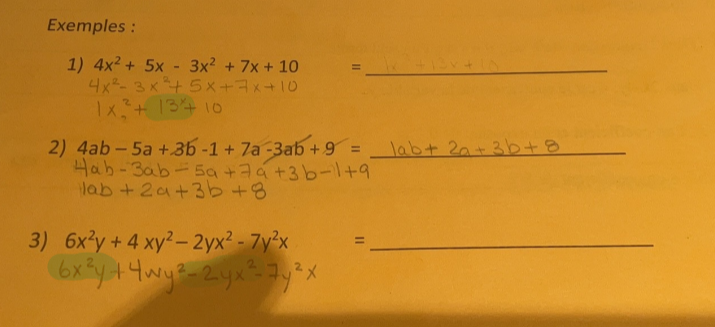 Exemples :
1) 4x² + 5x - 3x² + 7x + 10 = 1x² + 12x + 10
4x² - 3x² + 5x + 7x + 10
1x² + 13x + 10
2) 4ab – 5a + 3b -1 + 7a -3ab + 9 = 1ab + 2a + 3b + 8
4ab - 3ab - 5a + 7a + 3b - 1 + 9
1ab + 2a + 3b + 8
3) 6x²y + 4 xy² – 2yx² - 7y²x =
6x²y + 4xy² - 2yx² - 7y²x